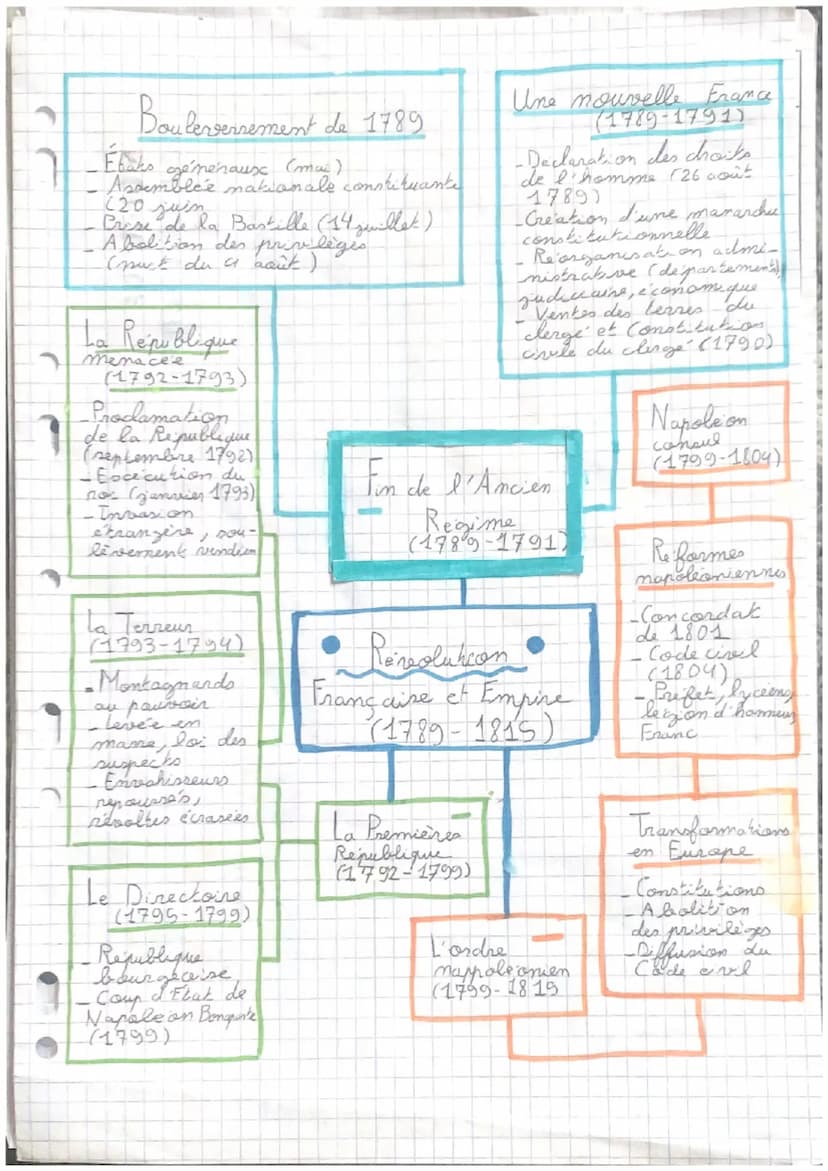 Bouleversement de 1789
- États généraux (mai)
- Assemblée nationale constituante
(20 juin
- Prise de la Bastille (14 juillet)
- Abolition des privilèges
(nuit du 4 août)
Une nouvelle France
(1789-1791)
- Declaration des droits
de l'homme (26 août
1789)
- Création d'une monarchie
constitutionnelle
- Réorganisation admi-
nistrative (département),
judiciaire, économique
- Ventes des terres du
clergé et Constitution
civile du clergé (1790)
La République
menacée
(1792-1793)
- Proclamation
de la République
(septembre 1792)
- Exécution du
roi (janvier 1793)
- Invasion
étrangère, sou-
lèvement vendéen
Fin de l'Ancien
Régime
(1789-1791)
Napoléon
consul
(1799-1804)
Reformes
napoléoniennes
- Concordat
de 1801
- Code civil
(1804)
- Préfet, lycéens,
leizon d'honneur,
Franc
La Terreur
(1793-1794)
- Montagnards
au pouvoir
- Levée en
masse, loi des
suspects
- Envahisseurs
repoussés,
révoltes écrasées
Révolution
Française et Empire
(1789-1815)
La Premières
République
(1792-1799)
Transformations
en Europe
- Constitutions
- Abolition
des privilèges
- Diffusion du
Code civil
Le Directoire
(1795-1799)
- République
bourgeoise,
- Coup d'État de
Napoléon Bonaparte
(1799)
L'ordre
nappoléonien
(1799-1815